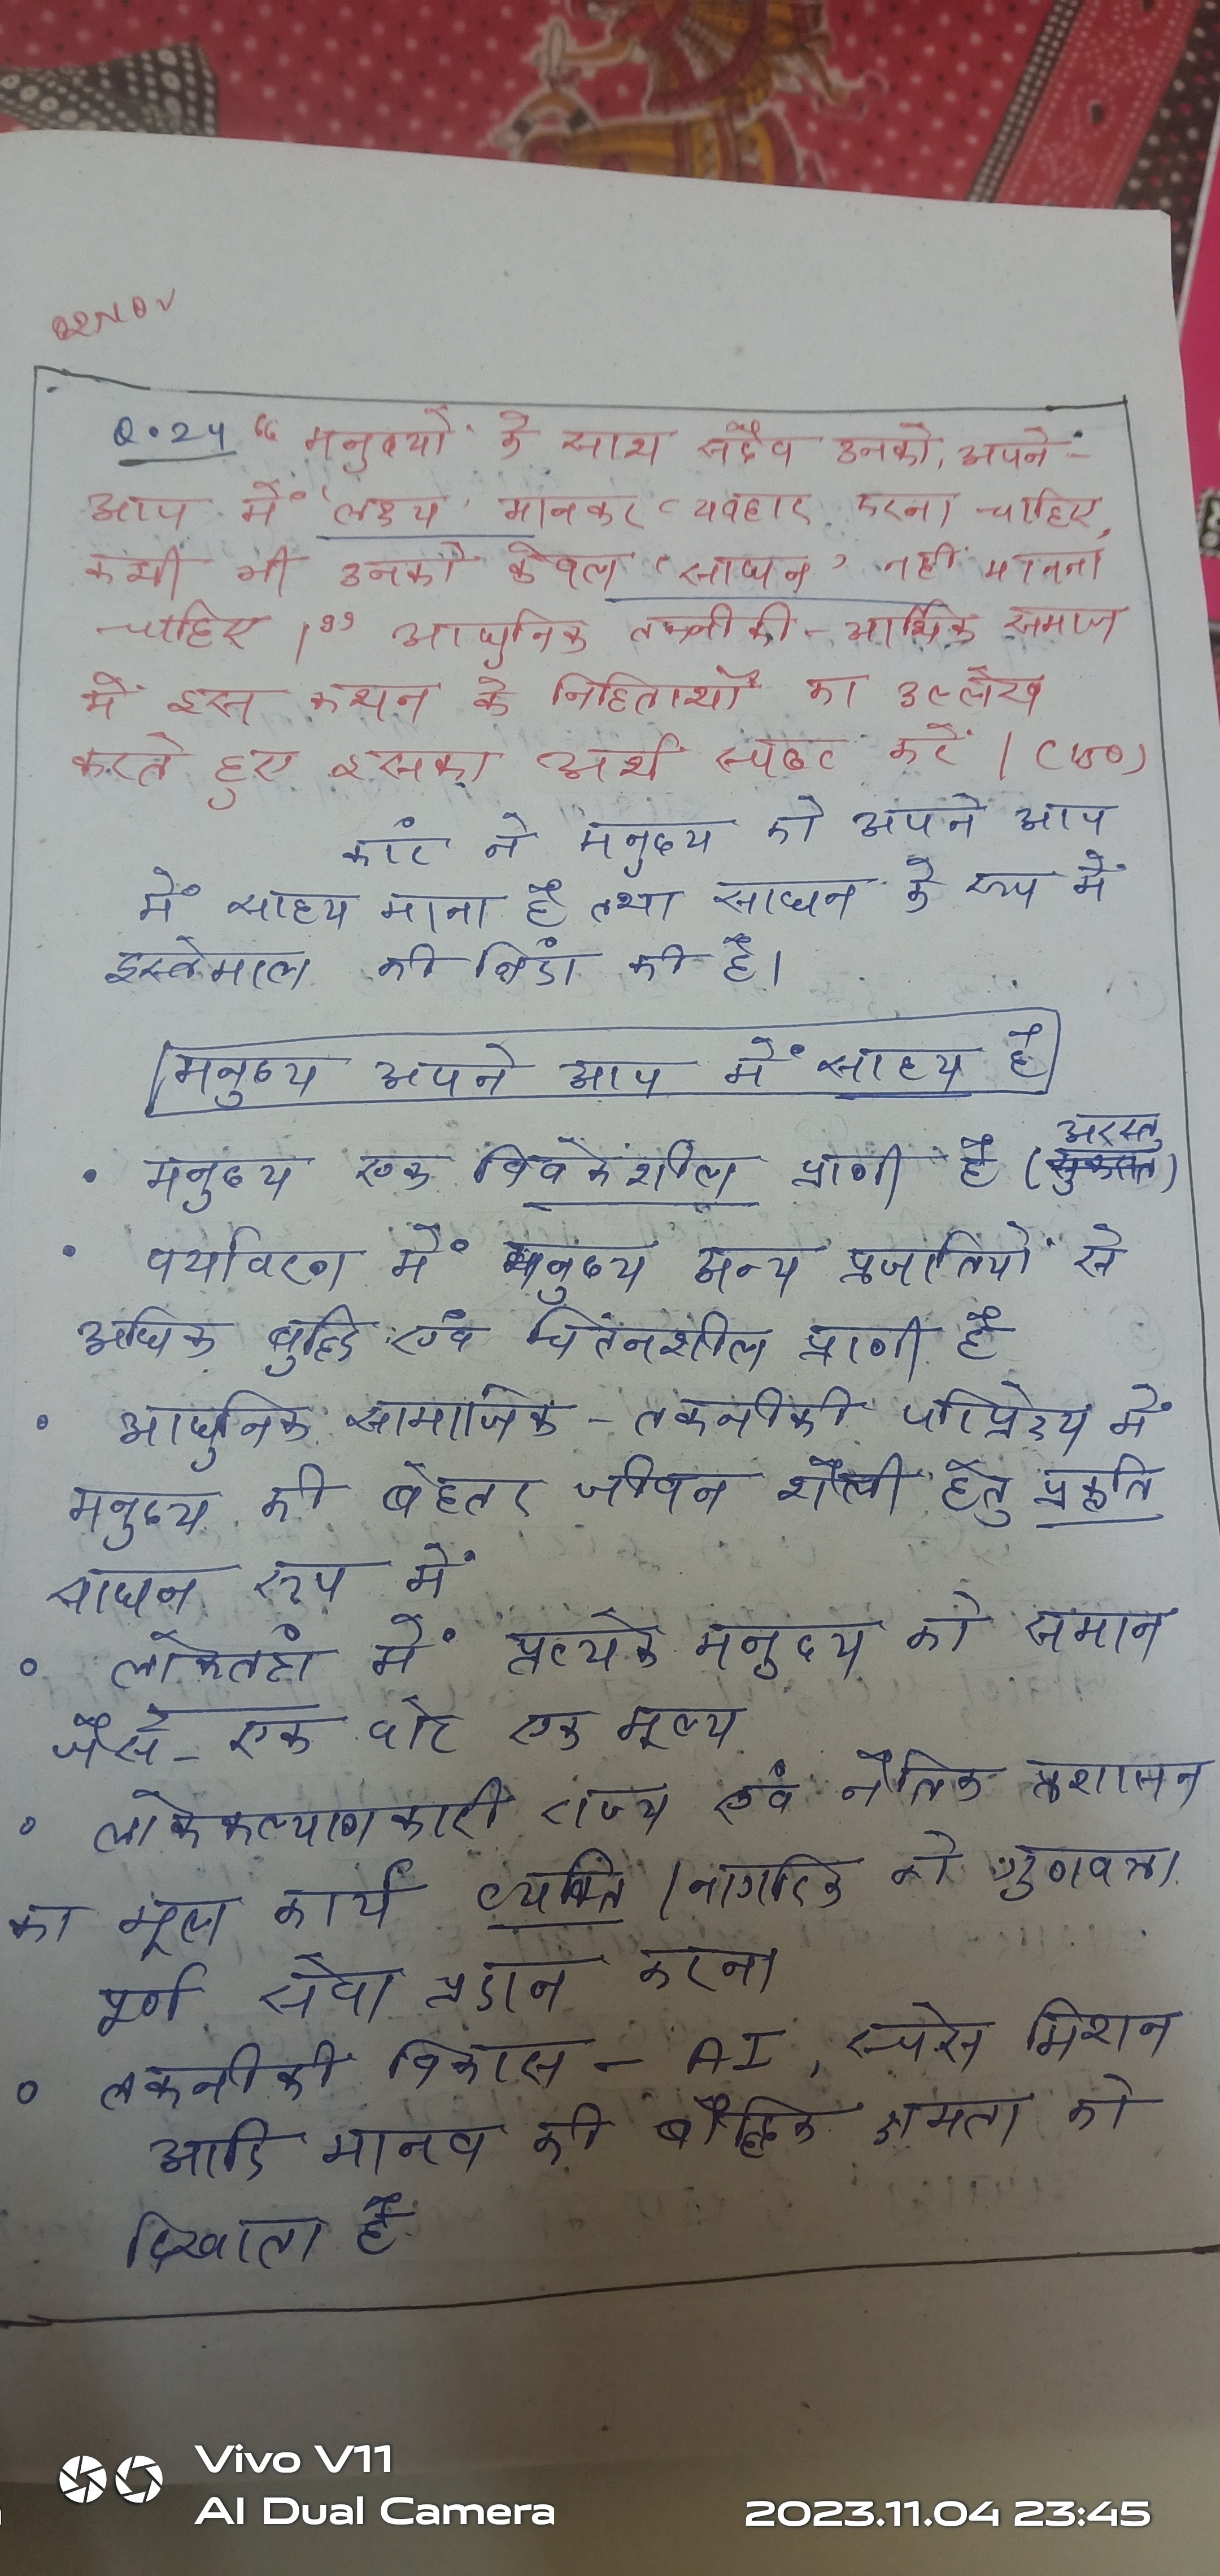 02 Nov
Q.24 “मनुष्यों के साथ सदैव उनको, अपने-
आप में 'लक्ष्य' मानकर व्यवहार करना चाहिए,
कभी भी उनको केवल 'साधन' नहीं मानना
चाहिए।” आधुनिक तकनीकी-आर्थिक समाज
में इस कथन के निहितार्थों का उल्लेख
करते हुए इसका अर्थ स्पष्ट करें। (150)
कांट ने मनुष्य को अपने आप
में साध्य माना है तथा साधन के रूप में
इस्तेमाल की निंदा की है।
मनुष्य अपने आप में साध्य है
• मनुष्य एक विवेकशील प्राणी है (अरस्तु)
• पर्यावरण में मनुष्य अन्य प्रजातियों से
अधिक बुद्धि एवं चिंतनशील प्राणी है
• आधुनिक सामाजिक - तकनीकी परिप्रेक्ष्य में
मनुष्य की बेहतर जीवन शैली हेतु प्रकृति
साधन रूप में
• लोकतंत्र में प्रत्येक मनुष्य को समान
जैसे - एक वोट एक मूल्य
• लोककल्याणकारी राज्य एवं नैतिक प्रशासन
का मूल कार्य व्यक्ति / नागरिक को गुणवत्ता
पूर्ण सेवा प्रदान करना
• तकनीकी विकास - AI, स्पेस मिशन
आदि मानव की बौद्धिक क्षमता को
दिखाता है
Vivo V11
AI Dual Camera
2023.11.04 23:45